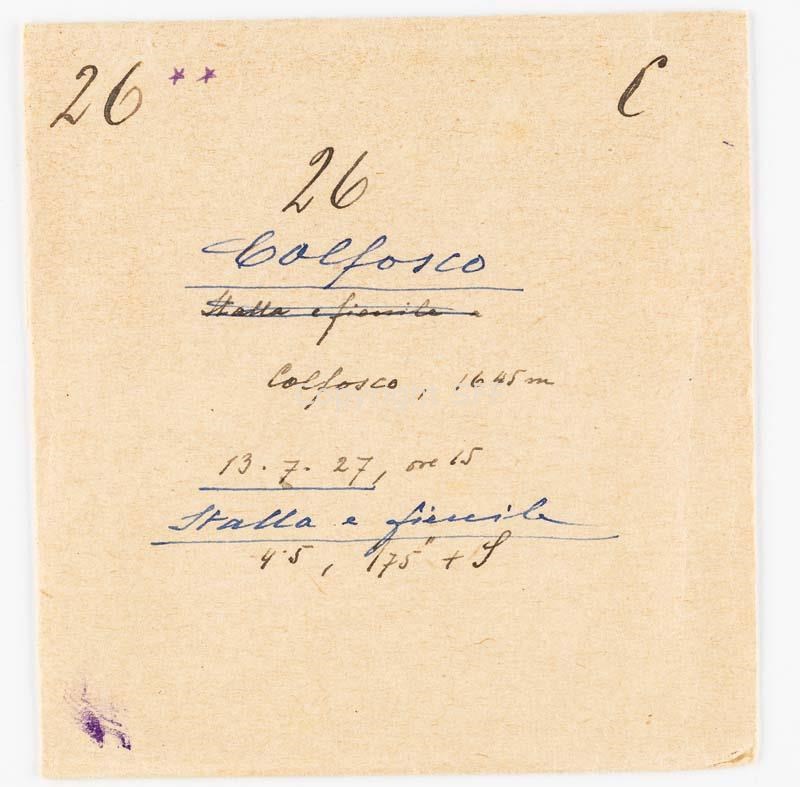 26 ** C
26
Colfosco
Stalla e fienile
Colfosco, 1645 m
13. 7. 27, ore 15
Stalla e fienile
4.5, 175" + S